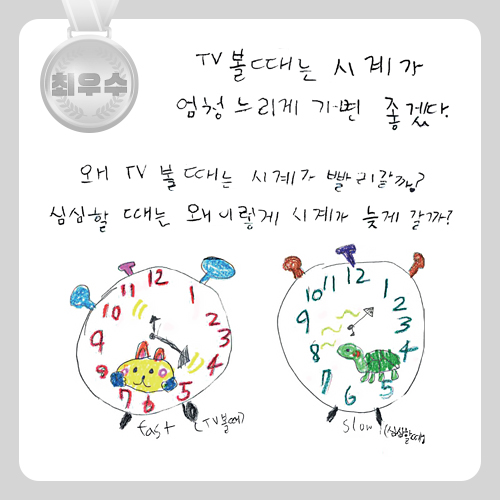 최우수
TV볼때는 시계가
엄청 느리게 가면 좋겠다.
왜 TV 볼때는 시계가 빨리갈까?
심심할 때는 왜 이렇게 시계가 늦게 갈까?
12
11
1
10
2
9
3
8
4
7
6
5
fast (TV볼때)
12
11
1
10
2
9
3
8
4
7
6
5
slow (심심할때)